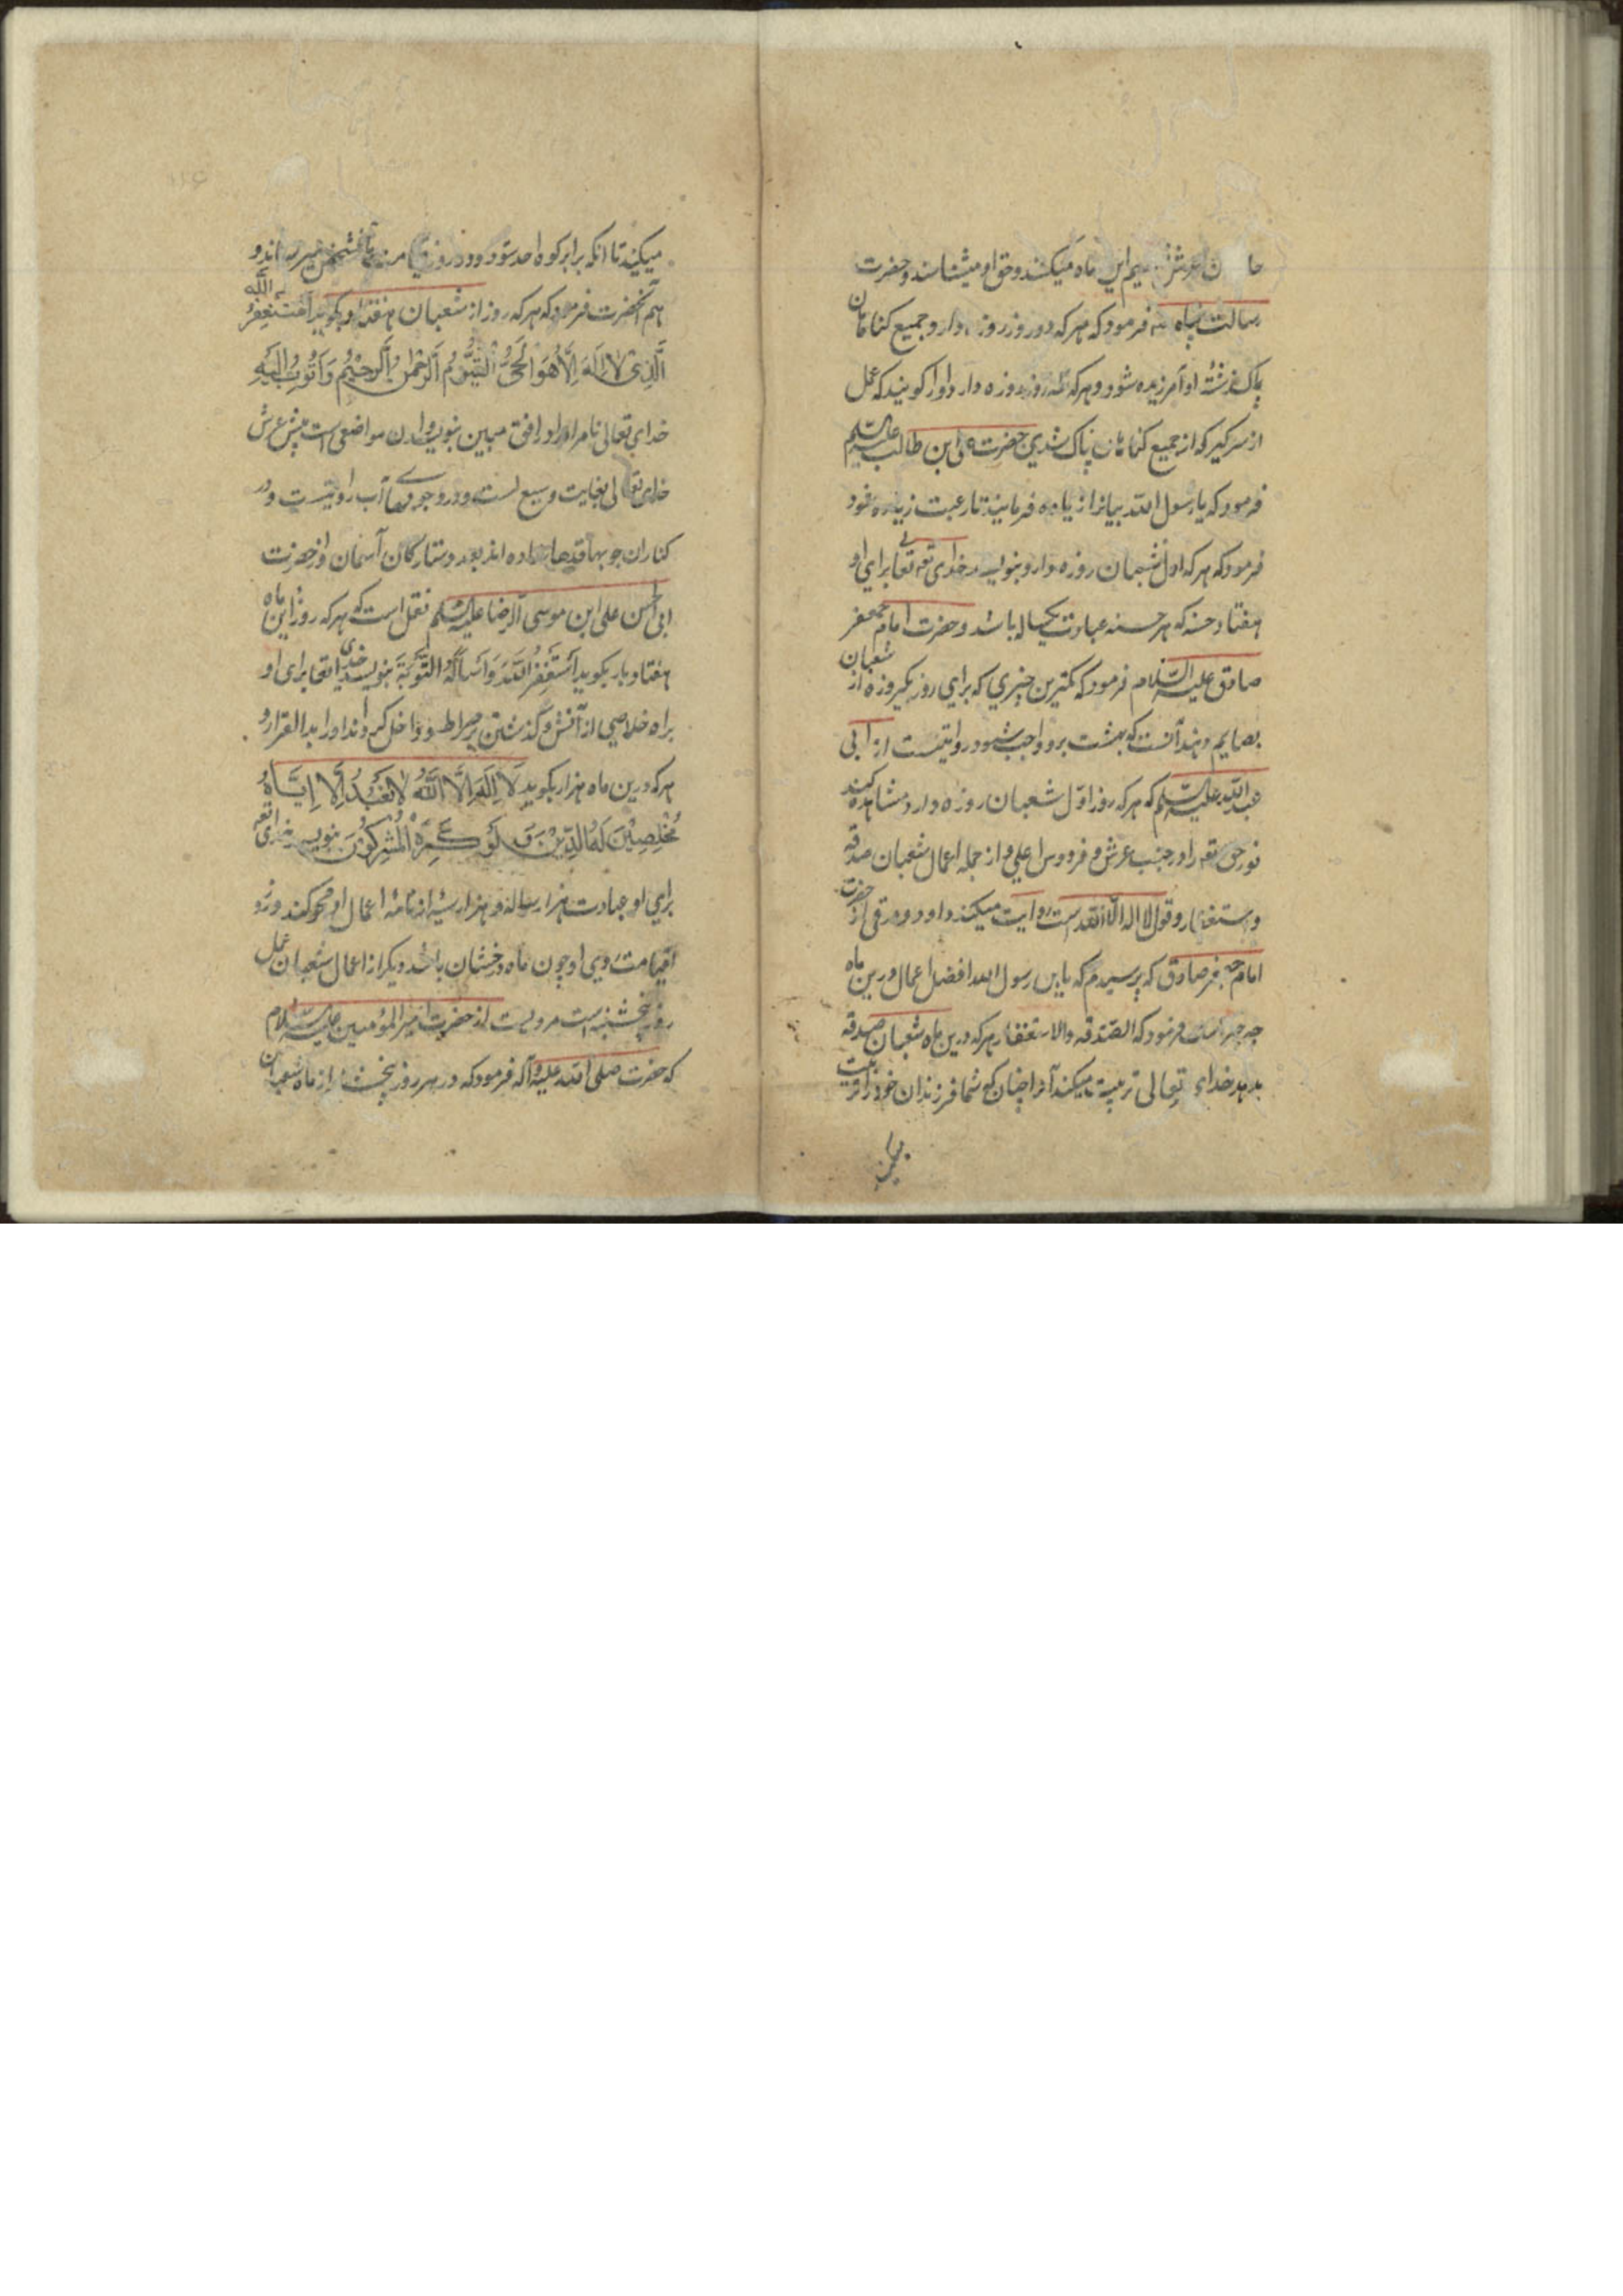 عرش تعظیم این ماه میکنند و حق او میشناسند و حضرت
رسالت پناه فرمود که هر که دو روز روزه دارد جمیع کناهان
او آمرزیده شود و هر که سه روز روزه دارد او را کویند که عمل
از سر کیر که از جمیع کناهان پاک شدی حضرت علی ابن طالب علیه السلم
فرمود که یا رسول الله فرمایند تا رغبت زیاده شود
فرمود که هر که اول شعبان روزه دارد بنویسد خدای تعالی برای او
هفتاد حسنه که هر حسنه عبادت یکساله باشد و حضرت امام جعفر
صادق علیه السلام فرمود که کمترین چیزی که برای روز یکروزه از شعبان
بصایم دهند آنست که بهشت برو واجب شود روایتست از ابی
عبدالله علیه السلم که هر که روز اول شعبان روزه دارد مشاهده کند
نور حق تعه را در جنب عرش و فردوس اعلی و از جمله اعمال شعبان صدقه
و استغفار و قول لا اله الا الله است روایت میکند داود رقی از حضرت
امام جعفر صادق که پرسیدم که یا بن رسول الله افضل اعمال درین ماه
چه چیز است فرمود که الصدقه والاستغفار هر که درین ماه شعبان صدقه
بدهد خداء تعالی تربیت میکند آنرا چنان که شما فرزندان خود را تربیت
میکنید تا انکه برابر کوه احد شود و در روز
هم آنحضرت فرمود که هر که روز از شعبان هفتاد بار بکوید استغفر الله
الَّذِی لَا اِلٰهَ اِلَّا هُوَ الحَیُّ الْقَیُّومُ الرَّحْمٰنُ الرَّحِیْمُ وَاَتُوبُ اِلَیْهِ
خدای تعالی نام او را در افق مبین بنویسد و ان مواضعی است پیش عرش
خدای تعالی بغایت وسیع است و درو جویهاء آب روانست و در
کناران جویها قدحها نهاده اند بعدد ستارکان آسمان و از حضرت
ابی الحسن علی ابن موسی الرضا علیه السلم نقل است که هر که روز این ماه
هفتاد بار بکوید اَسْتَغْفِرُ اللهَ وَاَسْاَلُهُ التَّوْبَةَ بنویسد خدای تعا برای او
براه خلاصی از آتش و کذشتن بر صراط و داخل کرداند او را بدار القرار و
هر که درین ماه هزار بار بکوید لَا اِلٰهَ اِلَّا اللّٰهُ لَا نَعْبُدُ اِلَّا اِیَّاهُ
مُخْلِصِیْنَ لَهُ الدِّیْنَ وَ لَوْ کَرِهَ الْمُشْرِکُوْنَ بنویسد خدای تعه
برای او عبادت هزار ساله و هزار سیئه از نامه اعمال او محو کند و روز
قیامت روی او چون ماه درخشان باشد دیکر از اعمال شعبان عمل
روز پنجشنبه است مرویست از حضرت امیر المؤمنین علیه السلام
که حضرت صلی الله علیه و آله فرمود که در هر روز پنجشنبه از ماه شعبان